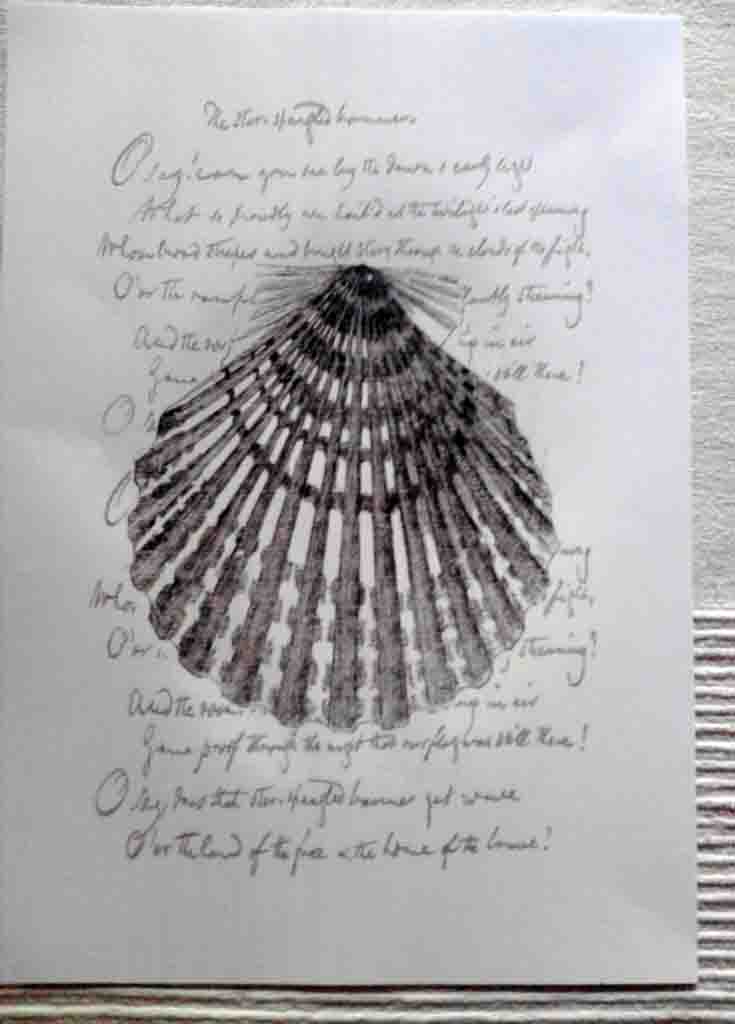 The star-spangled banner
O say! can you see by the dawn's early light
What so proudly we hail'd at the twilight's last gleaming
Whose broad stripes and bright stars through the clouds of the fight,
O'er the ramp lantly streaming?
And the roc in air
Gave still there!
O
O
Whos fight,
O'er streaming?
And the in air
Gave proof through the night that our flag was still there!
O say does that star-spangled banner yet wave
O'er the land of the free & the home of the brave?